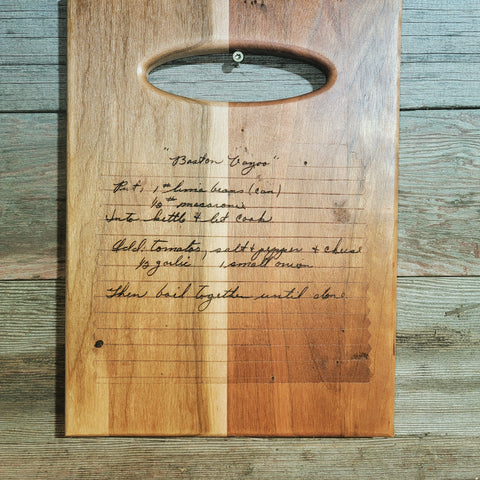 "Baston Vagoo"
Put, 1# lima beans (can)
1/2# macaroni
Into kettle & let cook
Add: tomatos, salt & pepper & cheese
1/2 garlic 1 small onion
Then boil together until done